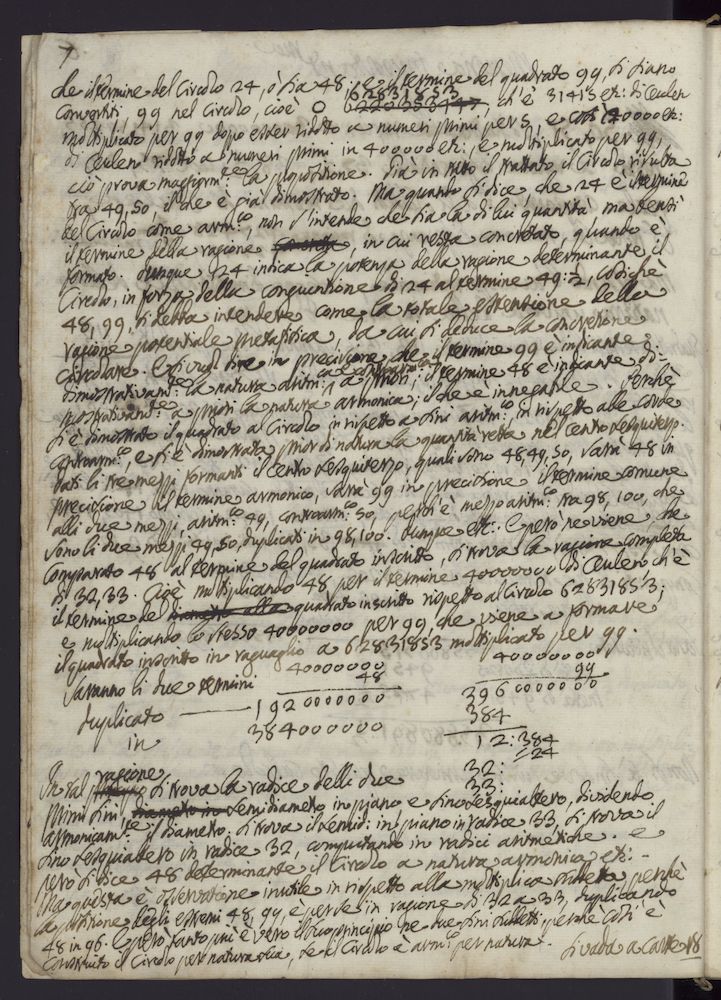 7
che il termine del Circolo 24, ò sia 48; e il termine del quadrato 99, si siano
62831853
convertiti, 99 nel Circolo, cioè 0 , ch'è 31415 etc: di Ceulen
moltiplicato per 99 dopo esser ridotto a numeri primi per 5 e così 40000 etc:
di Ceulen ridotto a numeri primi in 400000 etc:, e moltiplicato per 99,
ciò prova maggiorm.te la proposizione. Già in tutto il trattato il Circolo risulta
tra 49, 50, il che è già dimostrato. Ma quando si dice, che 24 è il termine
del Circolo come arm:co, non s'intende che sia la di lui quantità, ma bensì
il termine della ragione , in cui resta concretato, quando è
formato. Dunque 24 indica la potenza della ragione determinante il
Circolo, in forza della congiunzione di 24 al termine 49:½, cosichè
48, 99, si debba intendere come la totale estensione della
ragione potenziale metafisica, da cui si deduce la concrezione
circolare. E si vuol dire in precisione che il termine 99 è indicante
dimostrativam.te la natura aritm:ca a priori; il termine 48 è indicante di-
mostrativam.te a priori la natura armonica; il che è innegabile. Perchè
si è dimostrato il quadrato al Circolo in rispetto a sini aritm:co, in rispetto alle corde
contraarm:co, e si è dimostrata prior di natura la quantità retta nel Centro sesquiterzo.
Dati li tre mezzi formanti il Centro sesquiterzo, quali sono 48, 49, 50, sarà 48 in
precisione il termine armonico, sarà 99 in precisione il termine comune
alli due mezzi, aritm:co 49, contraarm:co 50, perch'è mezzo aritm:co tra 98, 100, che
sono li due mezzi 49, 50, duplicati in 98, 100. Dunque etc: E però ne viene, che
comparato 48 al termine del quadrato inscritto, si trova la ragione completa
di 32, 33. Cioè moltiplicando 48 per il termine 40000000 di Ceulen ch'è
il termine del quadrato inscritto rispetto al Circolo 62831853;
e moltiplicando lo stesso 40000000 per 99, che viene a formare
il quadrato inscritto in raguaglio a 62831853 moltiplicato per 99.
Saranno li due termini 40000000 40000000
48 99
1920000000 3960000000
duplicato 384
in 3840000000 12:384
24
32:
33:
In tal ragione si trova la radice delli due
primi sini, semidiametro in piano e sino sesquialtero, dividendo
armonicam:te il diametro. Si trova il semid: in piano in radice 33, si trova il
sino sesquialtero in radice 32, computando in radici aritmetiche. e
però si dice 48 determinante il Circolo a natura armonica etc:
Ma questa è osservazione inutile in rispetto alla moltiplica perchè
la posizione degli estremi 48, 99, è per se in ragione di 32 a 33, duplicando
48 in 96. E però tanto più è vero il suo principio ne due sini sudetti, perchè così è
construito il Circolo per natura sua, se il Circolo è arm:co per natura. Si vada a carte 18